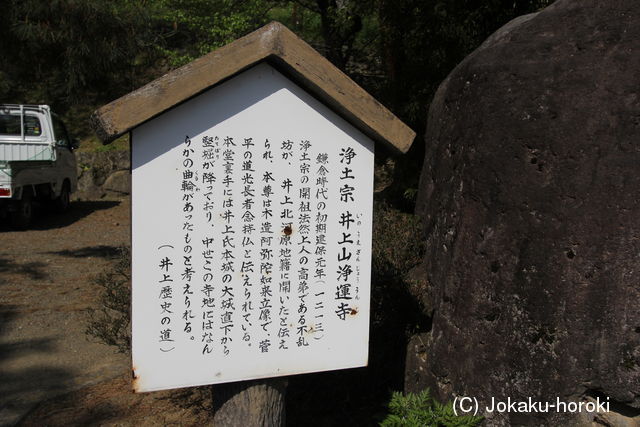 浄土宗 井上山浄運寺
いのうえざんじょううんじ
鎌倉時代の初期建保元年(一二一三)
浄土宗の開祖法然上人の高弟である不乱
坊が、井上北河原地籍に開いたと伝え
られ、本尊は木造阿弥陀如来立像で、菅
平の道光長者念持仏と伝えられている。
本堂裏手には井上氏本城の大城直下から
竪堀が降っており、中世この寺地にはなん
たてぼり
らかの曲輪があったものと考えられる。
くるわ
(井上歴史の道)
(C) Jokaku-horoki